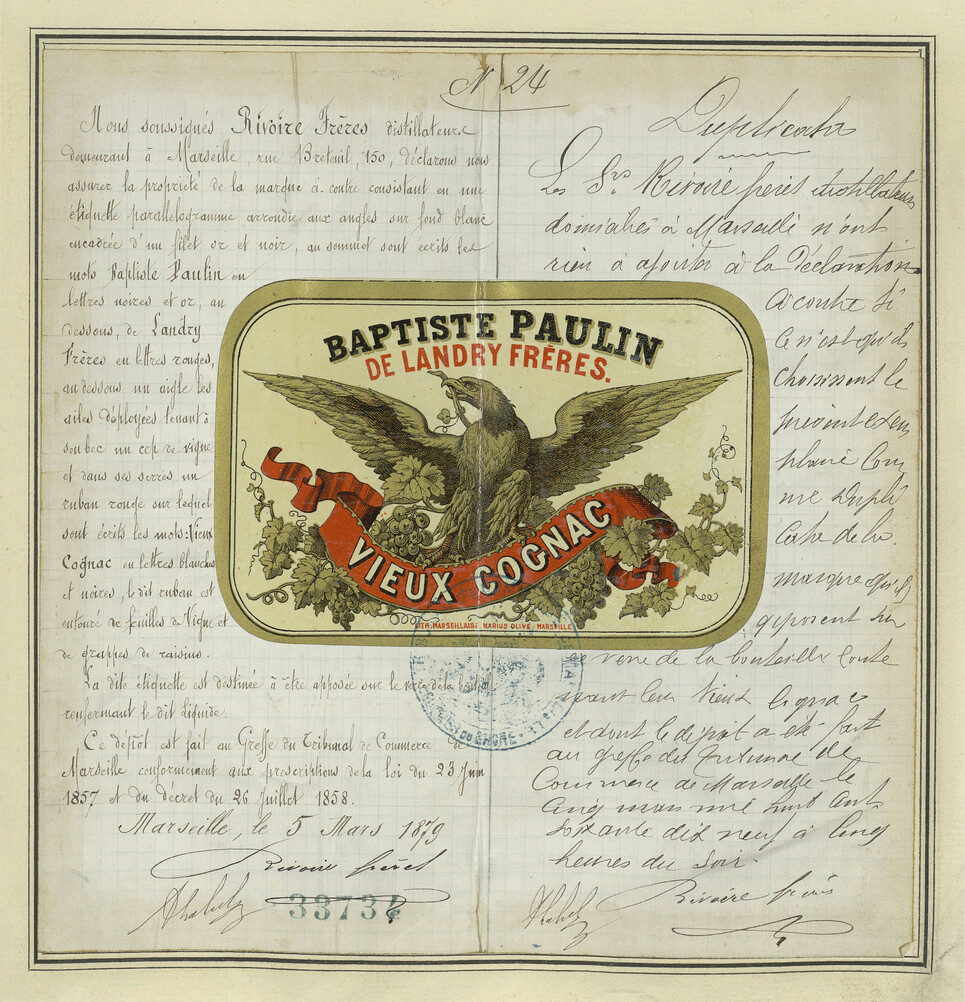 N° 24
Nous soussignés Rivoire Frères distillateurs
demeurant à Marseille, rue Breteuil, 150, déclarons nous
assurer la propriété de la marque ci-contre consistant en une
étiquette parallelogramme arrondie aux angles sur fond blanc
encadrée d'un filet or et noir, au sommet sont écrits les
mots Baptiste Paulin en
lettres noires et or, au
dessous, de Landry
Frères en lettres rouges,
au dessous un aigle les
ailes déployées tenant à
son bec un cep de vigne
et dans ses serres un
ruban rouge sur lequel
sont écrits les mots: Vieux
Cognac en lettres blanches
et noires, le dit ruban est
entouré de feuilles de Vigne et
de grappes de raisins.
La dite étiquette est destinée à être apposée sur le verre de la bouteille
renfermant le dit liquide.
Ce dépôt est fait au Greffe du Tribunal de Commerce de
Marseille conformement aux prescriptions de la loi du 23 Juin
1857 et du décret du 26 Juillet 1858.
Marseille, le 5 Mars 1879
Rivoire frères
33734
BAPTISTE PAULIN
DE LANDRY FRÈRES.
VIEUX COGNAC
LITH. MARSEILLAISE, MARIUS OLIVE, MARSEILLE
Duplicata
Les Srs Rivoire frères distillateurs
domiciliés à Marseille n'ont
rien à ajouter à la Déclaration
ci contre si
ce n'est qu'ils
choisissent le
présent exem
plaire com
me Dupli
cata de la
marque qu'ils
apposent sur
le verre de la bouteille conte
nant leur vieux Cognac
et dont le dépôt a été fait
au greffe du Tribunal de
Commerce de Marseille le
cinq mars mil huit cent
soixante dix neuf à cinq
heures du soir.
Rivoire frères